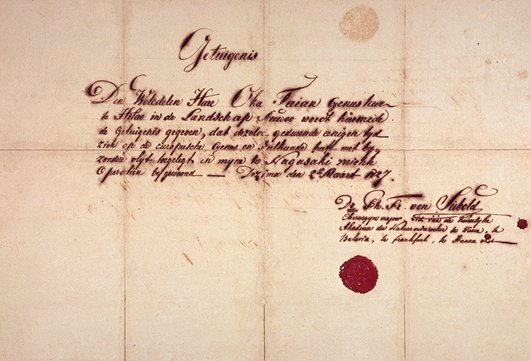 Getuigenis
Den Weledelen Heer Oka Taian Geneesheer
te in de Landschap wordt hiermede
de Getuigenis gegeven, dat dezelve gedurende eenigen tyd
zich op de Europische Genees en Heelkunde heeft met by-
zondere vlyt toegelegt en myne te Nagasaki verrichte
Operatien bygewoond — Dezima den 2 Maart 1827.
Dr. Ph. Fr. von Siebold
Chirurgyn majoor,
Akademie der Natuuronderzoeker te
Batavia, te Frankfurt, te Hanau